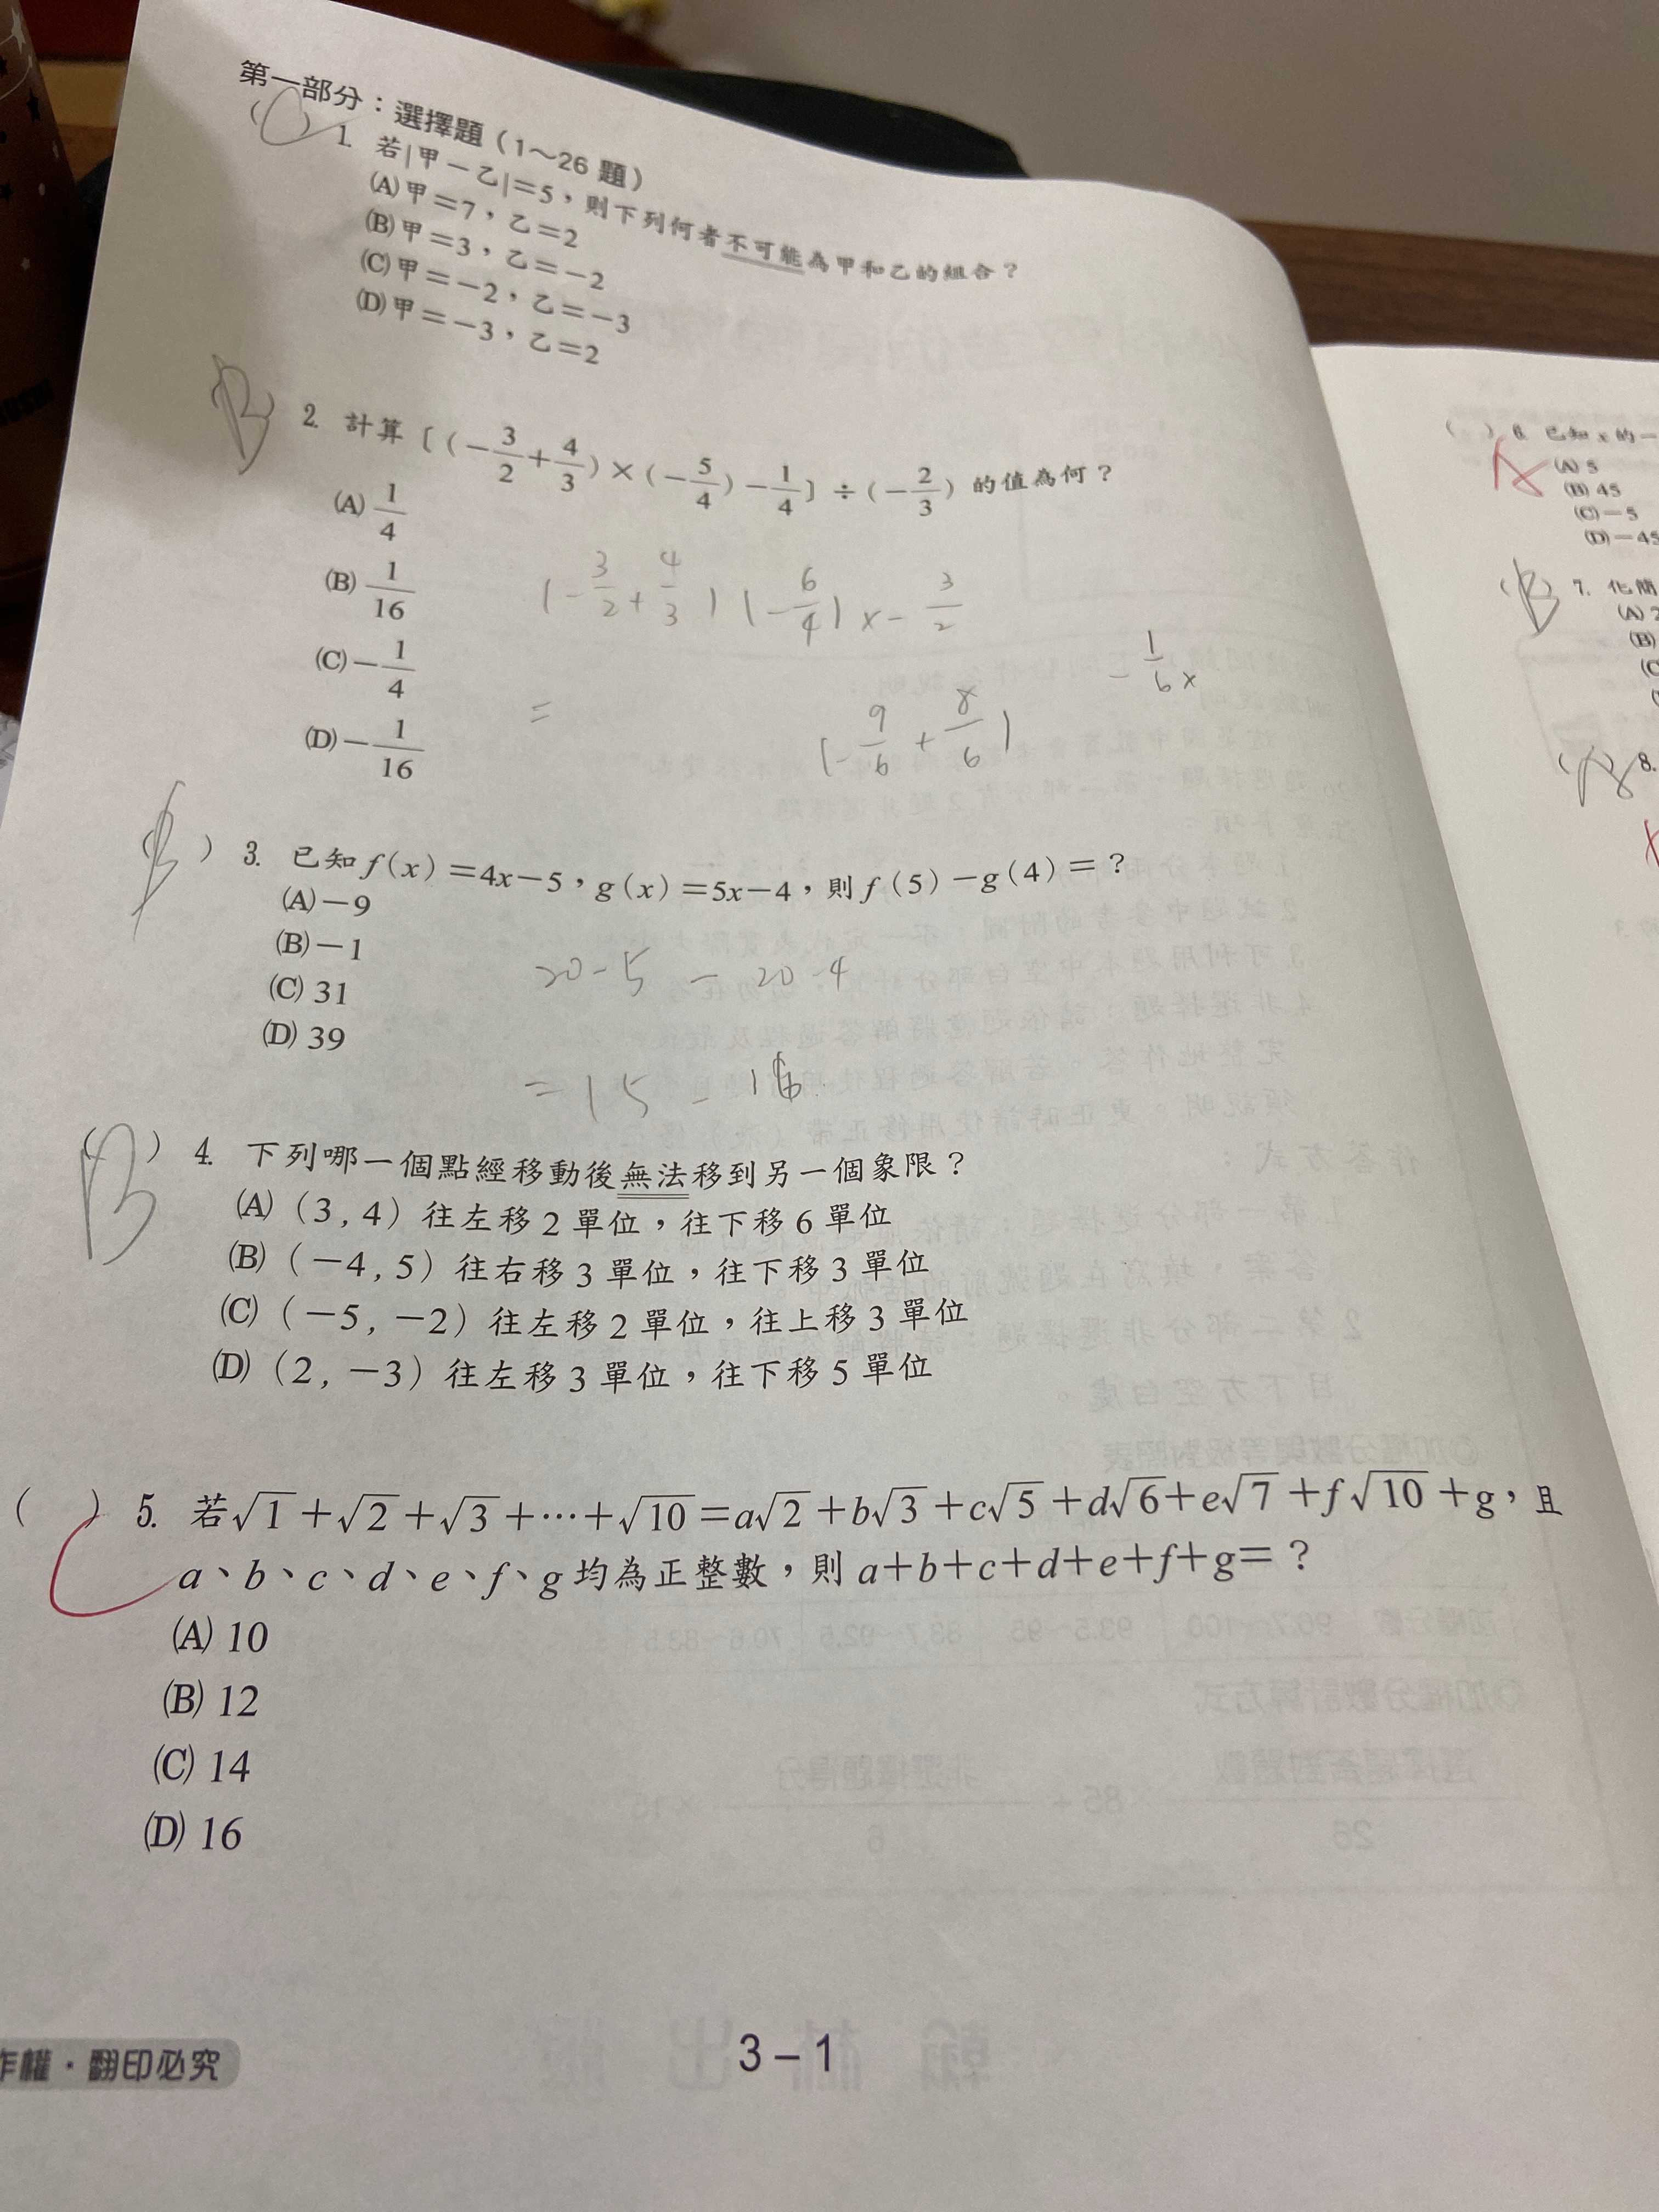 第一部分：選擇題（1～26 題）
(C) 1. 若|甲－乙|＝5，則下列何者不可能為甲和乙的組合？
(A) 甲＝7，乙＝2
(B) 甲＝3，乙＝－2
(C) 甲＝－2，乙＝－3
(D) 甲＝－3，乙＝2
(B) 2. 計算〔(－3/2＋4/3)×(－5/4)－1/4〕÷(－2/3) 的值為何？
(A) 1/4
(B) 1/16
(C) －1/4
(D) －1/16
(－3/2＋4/3)(－6/4)×－3/2
－1/6 ×
＝ (－9/6＋8/6)
(B) 3. 已知 f(x)＝4x－5，g(x)＝5x－4，則 f(5)－g(4)＝？
(A) －9
(B) －1
(C) 31
(D) 39
20－5 － 20－4
＝15－16
(B) 4. 下列哪一個點經移動後無法移到另一個象限？
(A) (3, 4) 往左移 2 單位，往下移 6 單位
(B) (－4, 5) 往右移 3 單位，往下移 3 單位
(C) (－5, －2) 往左移 2 單位，往上移 3 單位
(D) (2, －3) 往左移 3 單位，往下移 5 單位
( ) 5. 若√1＋√2＋√3＋⋯＋√10＝a√2＋b√3＋c√5＋d√6＋e√7＋f√10＋g，且
a、b、c、d、e、f、g 均為正整數，則 a＋b＋c＋d＋e＋f＋g＝？
(A) 10
(B) 12
(C) 14
(D) 16
3－1
作權・翻印必究
( ) 6. 已知 x 的一
(A) 5
(B) 45
(C) －5
(D) －45
(B) 7. 化簡
(A) 2
(B)
8.